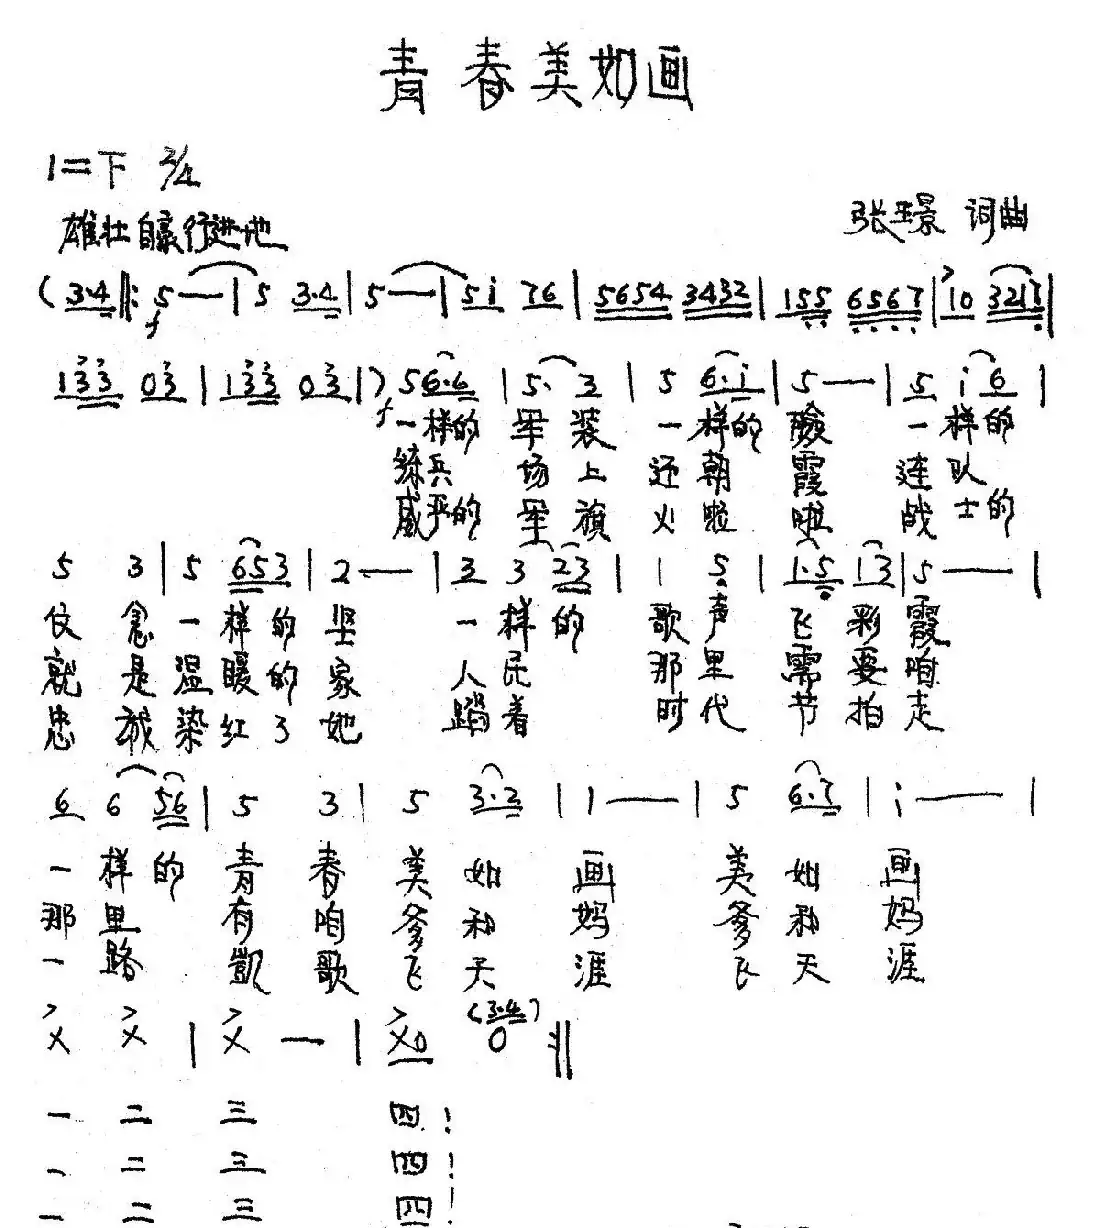 青春美如画
1=下 2/4
雄壮自豪行进地
张璟 词曲
(3·4‖: 5 — | 5 3·4 | 5 — | 5i 76 | 5654 3432 | 155 6567 | 10 3217 |
133 03 | 133 03 | ) 56·6 | 5· 3 | 5 6·i | 5 — | 5 i 6 |
f f
一样的 军装 一样的 脸 一样的
练兵 场上 还朝 霞 连队
威严的 军旗 火啦 啦 战士的
5 3 | 5 653 | 2 — | 3 3 23 | 1 5 | 1·5 13 | 5 — |
信念 一样的 坚 一样的 歌声 飞彩 霞
就是 温暖的 家 人民 那里 需要 咱
忠诚 染红了 她 踏着 时代 节拍 走
6 6 56 | 5 3 | 5 3·2 | 1 — | 5 6·7 | i — |
一样的 青春 美如 画 美如 画
那里 有咱 爹和 妈 爹和 妈
一路 凯歌 飞天 涯 飞天 涯
X X | X — | X0 (3·4) 0 :‖
一 二 三 四!
一 二 三 四!
一 二 三 四!